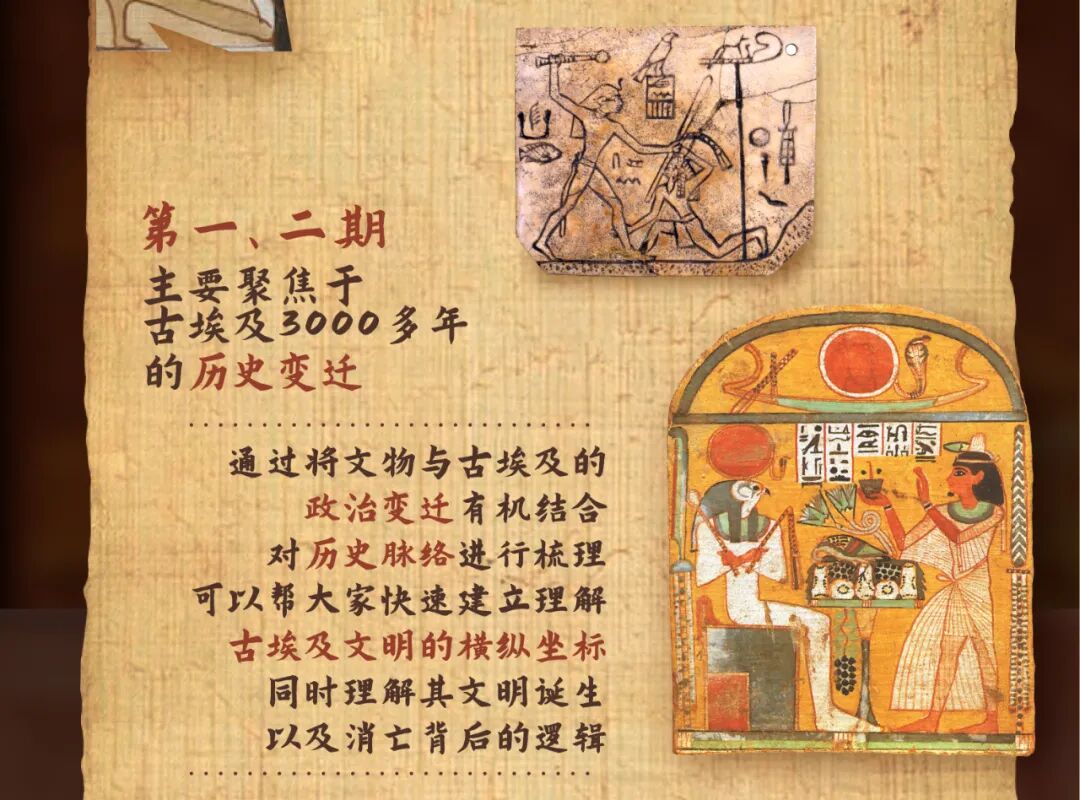 第一、二期
主要聚焦于
古埃及3000多年
的历史变迁
通过将文物与古埃及的
政治变迁有机结合
对历史脉络进行梳理
可以帮大家快速建立理解
古埃及文明的横纵坐标
同时理解其文明诞生
以及消亡背后的逻辑